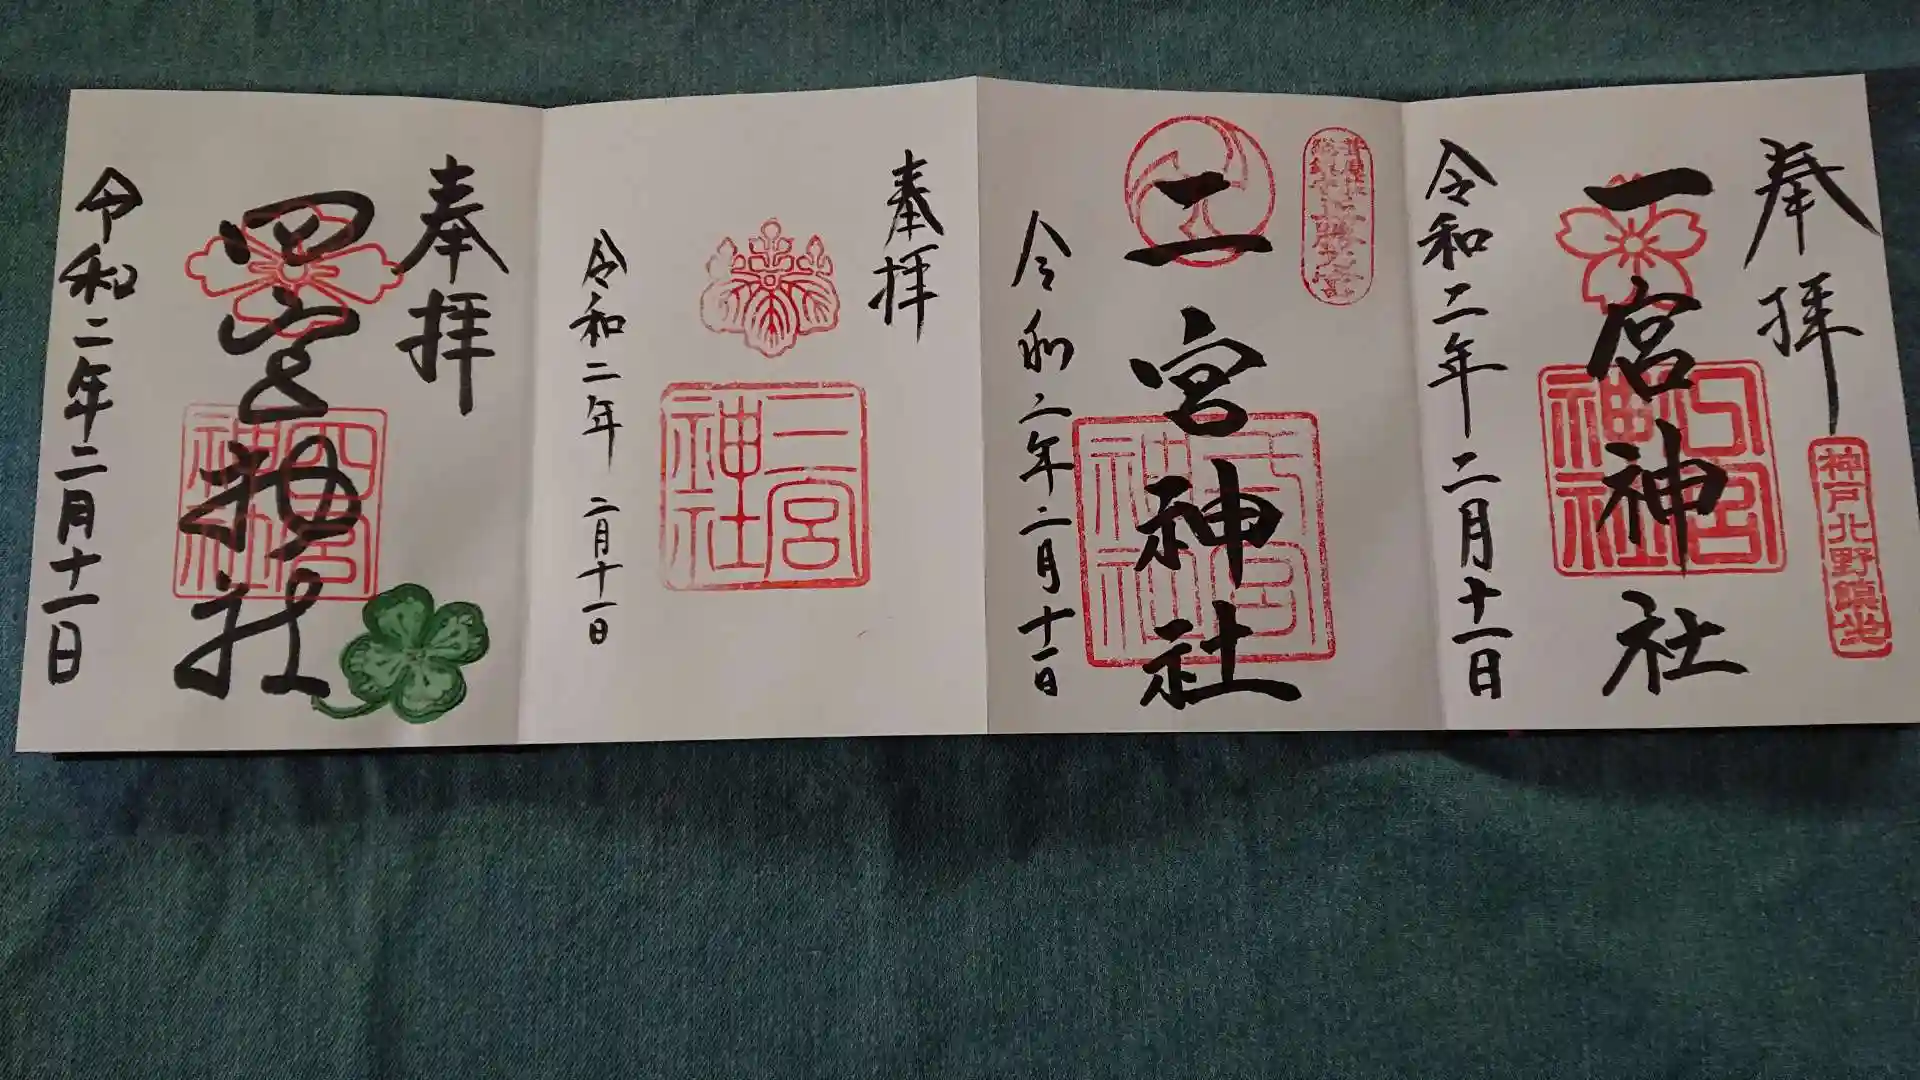 奉拝
一宮神社
一宮神社
神戸北野鎮坐
令和二年二月十一日
二宮神社
二宮神社
令和二年二月十一日
奉拝
三宮神社
令和二年二月十一日
奉拝
四宮神社
四宮神社
令和二年二月十一日